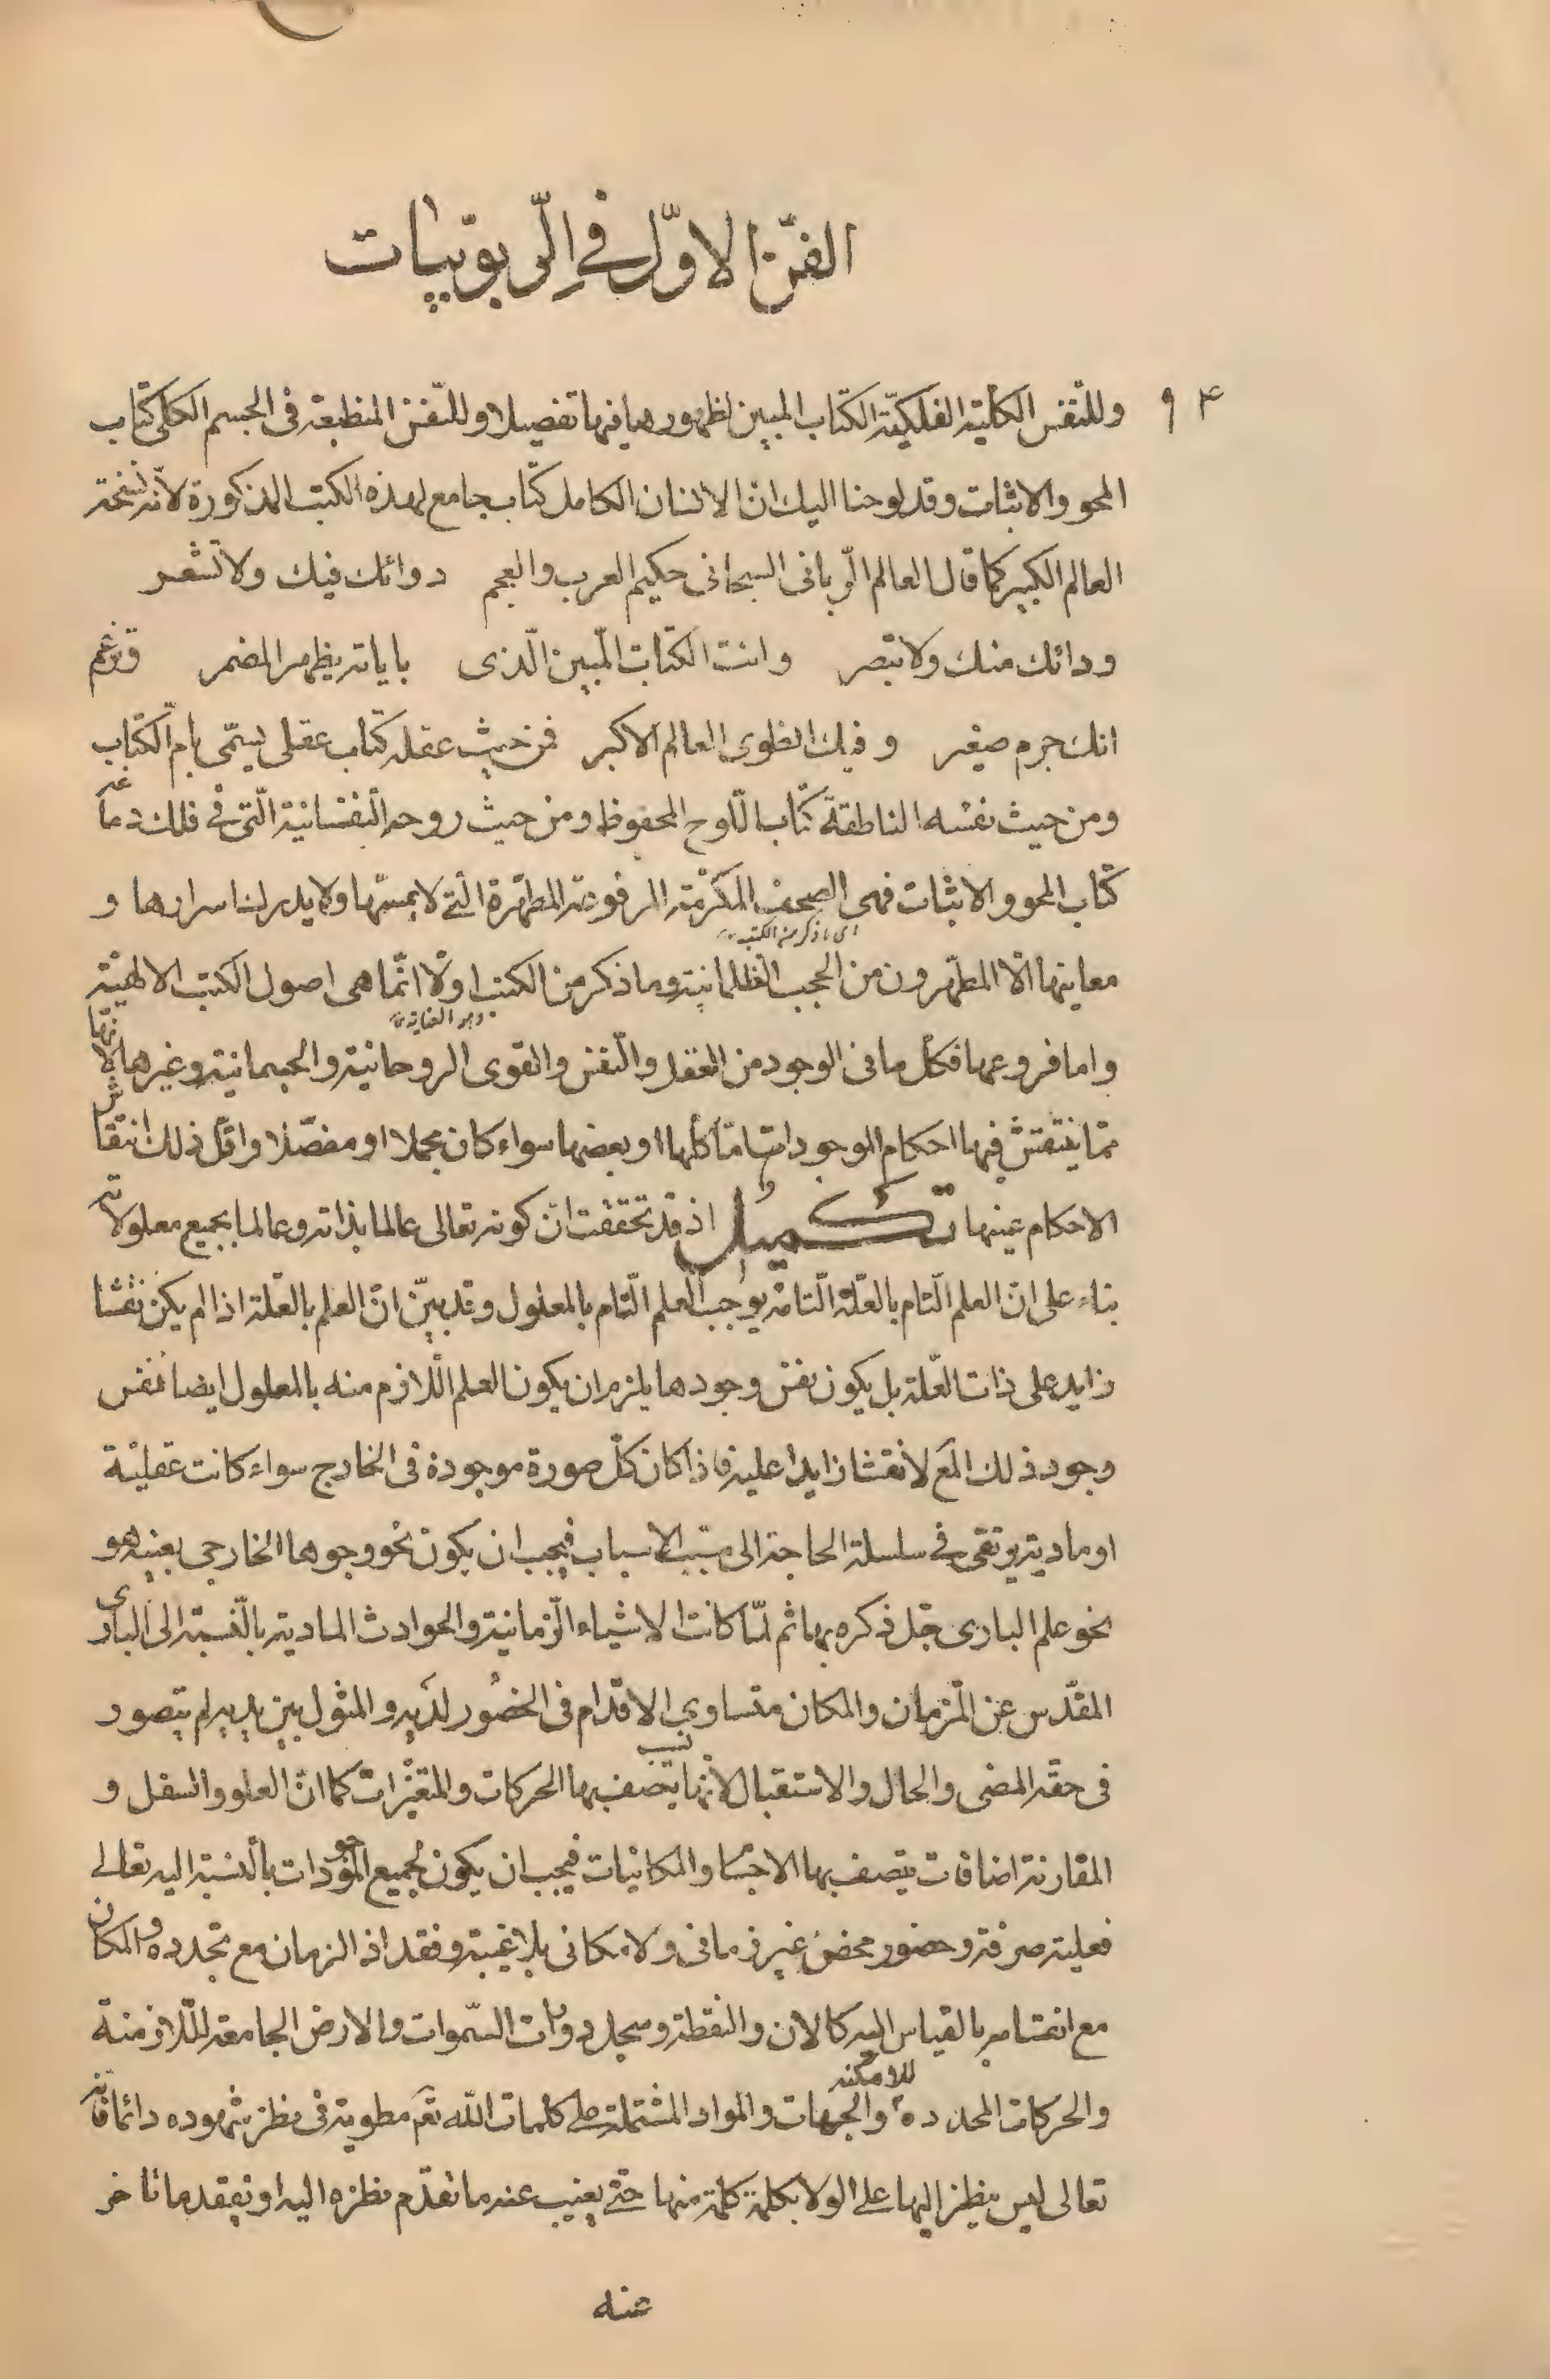 الفنّ الاوّل في الرّبوبيّات
۹۴
وللنّفس الكليّة الفلكيّة الكتاب المبين لظهورها فيها تفصيلا وللنّفس المنطبعة فى الجسم الكلى كتاب
المحو والاثبات وقد لوحنا اليك انّ الانسان الكامل كتاب جامع لهذه الكتب المذكورة لانّه نسخة
العالم الكبير كما قال العالم الرّبانى السبحانى حكيم العرب والعجم دوائك فيك ولا تشعر
ودائك منك ولا تبصر وانت الكتاب المبين الّذى باياته يظهر المضمر وتزعم
انك جرم صغير وفيك انطوى العالم الاكبر فمن حيث عقله كتاب عقلى يسمّى بام الكتاب
ومن حيث نفسه الناطقة كتاب اللّوح المحفوظ ومن حيث روحه النّفسانية الّتى في فلك دماغه
كتاب المحو والاثبات فهى الصحف المكرّمة المرفوعة المطهّرة الّتي لا يمسّها ولا يدرك اسرارها و
اى ما ذكر من الكتب
معاينها الّا المطهّرون من الحجب الظلمانية وما ذكر من الكتب اولا انّما هى اصول الكتب الالهيّة
واما فروعها فكل ما فى الوجود من العقل والنّفس والقوى الروحانية والجسمانية وغيرها لانّها
ممّا ينتقش فيها احكام الموجودات امّا كلها او بعضها سواء كان مجملا او مفصّلا واقلّ ذلك انتقاش
الاحكام عينها تكميل اذ قد تحققت انّ كونه تعالى عالما بذاته وعالما بجميع معلولاته
بناء على انّ العلم التّام بالعلّة التّامة يوجب العلم التّام بالمعلول وقد بيّن انّ العلم بالعلّة اذا لم يكن نقشا
زايد على ذات العلّة بل يكون نفس وجودها يلزم ان يكون العلم اللّازم منه بالمعلول ايضا نفس
وجود ذلك المع لا نقشا زايدا عليه فاذا كان كلّ صورة موجودة فى الخارج سواء كانت عقليّة
او مادية يرتقى في سلسلة الحاجة الى مسبّب الاسباب فيجب ان يكون نحو وجوهها الخارجى بعينه هو
نحو علم البارى جلّ ذكره بها ثم لمّا كانت الاشياء الزّمانية والحوادث المادية بالنّسبة الى البارى
المقدّس عن الزّمان والمكان متساوى الاقدام فى الحضور لديه والمثول بين يديه لم يتصور
فى حقّه المضى والحال والاستقبال لانّها نسب يتّصف بها الحركات والمتغيّرات كما انّ العلو والسفل و
المقارنة اضافات يتصف بها الاجسام والمكانيات فيجب ان يكون لجميع الموجودات بالنسبة اليه تعالى
فعلية صرفة وحضور محض غير زمانى ولا مكانى بلا غيبة وفقد اذ الزمان مع تجدده والمكان
مع انقسامه بالقياس اليه كالان والنقطة وسجل دورات السّموات والارض الجامعة للازمنة
والحركات المحددة للامكنة والجهات والمواد المشتملة على كلمات الله تعم مطوية فى نظر شهوده دائما فانه
تعالى ليس ينظر اليها على الولا بكلمة كلمة منها حتّى يغيب عنه ما تقدّم نظره اليه او يفقد ما تاخر
عنه